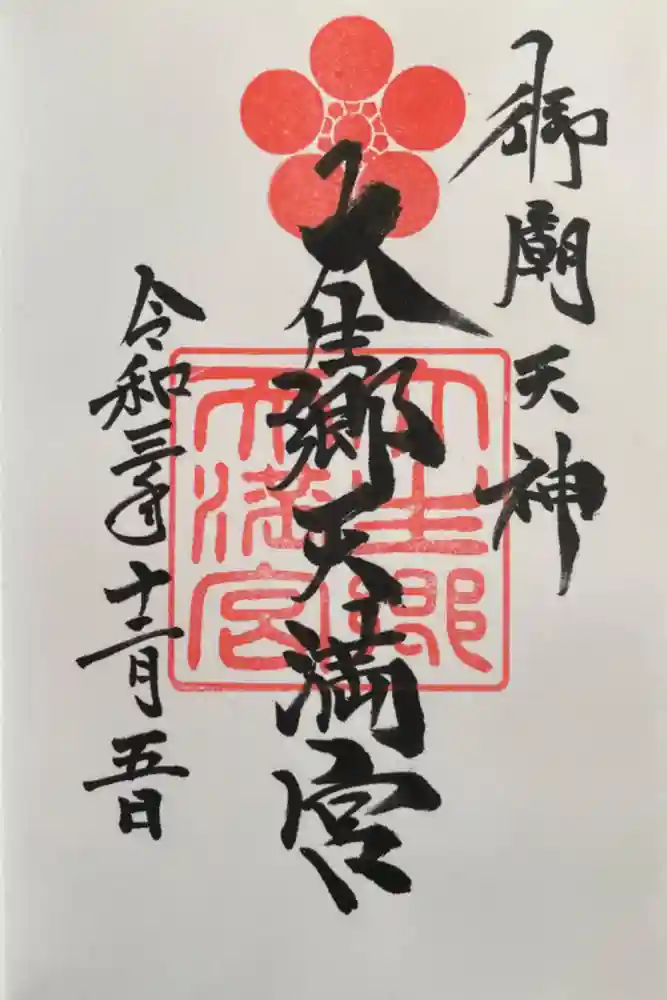 御廟天神
大生郷天満宮
大生郷
天満宮
令和三年十二月五日